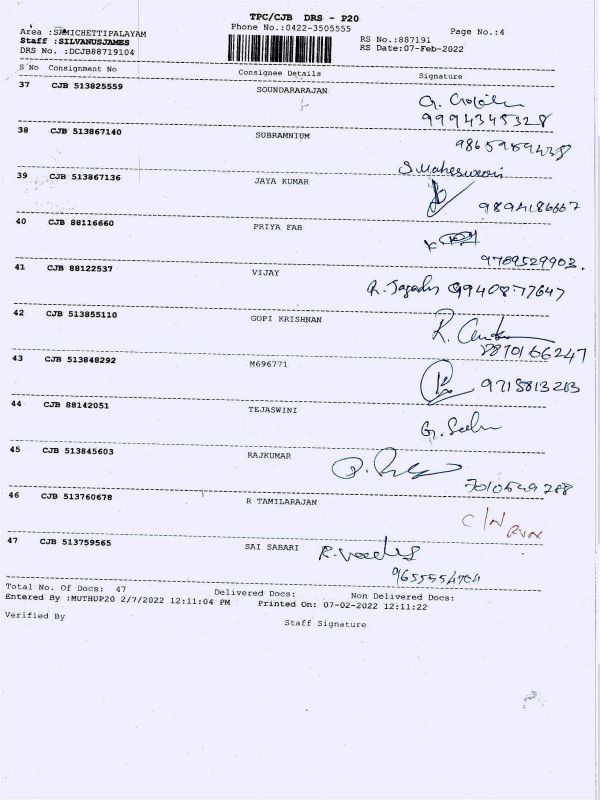 TPC/CJB DRS - P20
Area :SAMICHETTIPALAYAM Phone No.:0422-3505555 Page No.:4
Staff :SILVANUSJAMES RS No.:887191
DRS No. :DCJB88719104 RS Date:07-Feb-2022
S No Consignment No Consignee Details Signature
37 CJB 513825559 SOUNDARARAJAN
9994345328
38 CJB 513867140 SUBRAMNIUM 9865989438
S.Maheswari
39 CJB 513867136 JAYA KUMAR 9894186667
40 CJB 88116660 PRIYA FAB
9789529902.
41 CJB 88122537 VIJAY 9940877647
42 CJB 513855110 GOPI KRISHNAN
8870166247
43 CJB 513848292 M696771
44 CJB 88142051 TEJASWINI
45 CJB 513845603 RAJKUMAR
7010549788
46 CJB 513760678 R TAMILARAJAN C/N
47 CJB 513759565 SAI SABARI
Total No. Of Docs: 47 Delivered Docs: Non Delivered Docs:
Entered By :MUTHUP20 2/7/2022 12:11:04 PM Printed On: 07-02-2022 12:11:22
Verified By Staff Signature